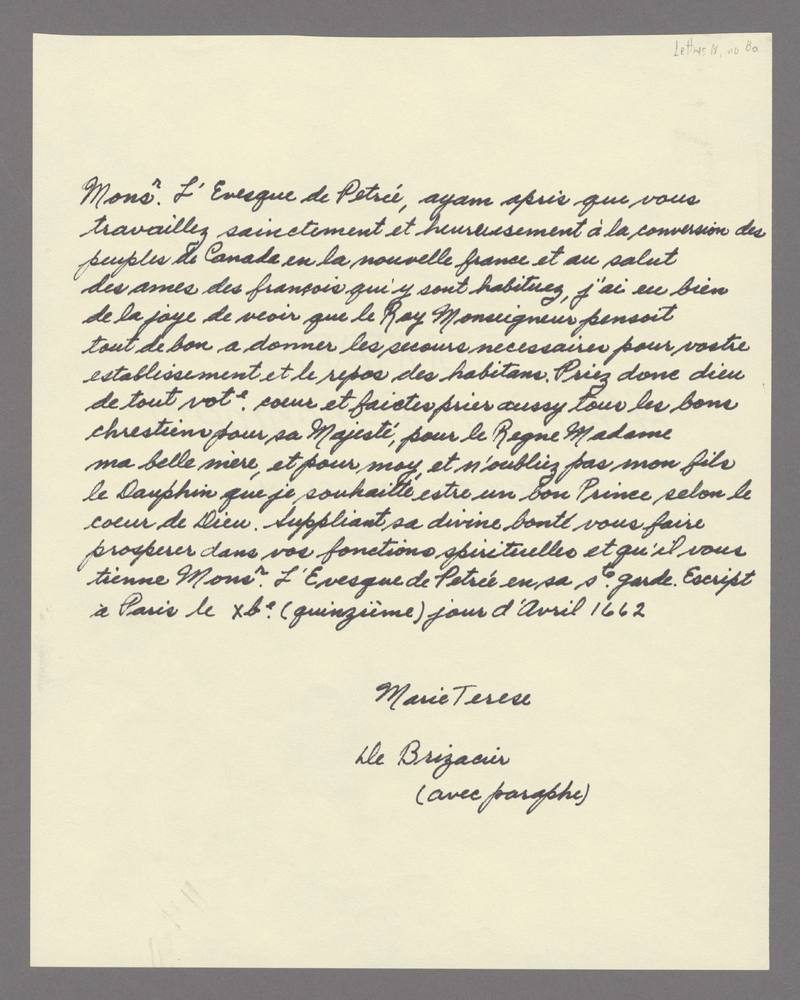 Lettres N, no 8a
Monsr. L' Evesque de Petrée, ayam apris que vous
travaillez sainctement et heureusement à la conversion des
peuples de Canada en la nouvelle france et au salut
des ames des françois qui y sont habituez, j'ai eu bien
de la joye de veoir que le Roy Monseigneur pensoit
tout de bon a donner les secours necessaires pour vostre
establissement et le repos des habitans. Priez donc dieu
de tout vote. coeur et faictes prier aussy tous les bons
chrestiens pour sa Majesté, pour le Regne Madame
ma belle mère, et pour moy, et n'oubliez pas mon fils
le Dauphin que je souhaitte estre un bon Prince, selon le
coeur de Dieu. Suppliant sa divine bonté vous faire
prosperer dans vos fonctions spirituelles et qu'il vous
tienne Monsr. L'Evesque de Petrée en sa ste. garde. Escript
a Paris le xbe. (quinzième) jour d'Avril 1662
Marie Terese
De Brizacier
(avec paraphe)